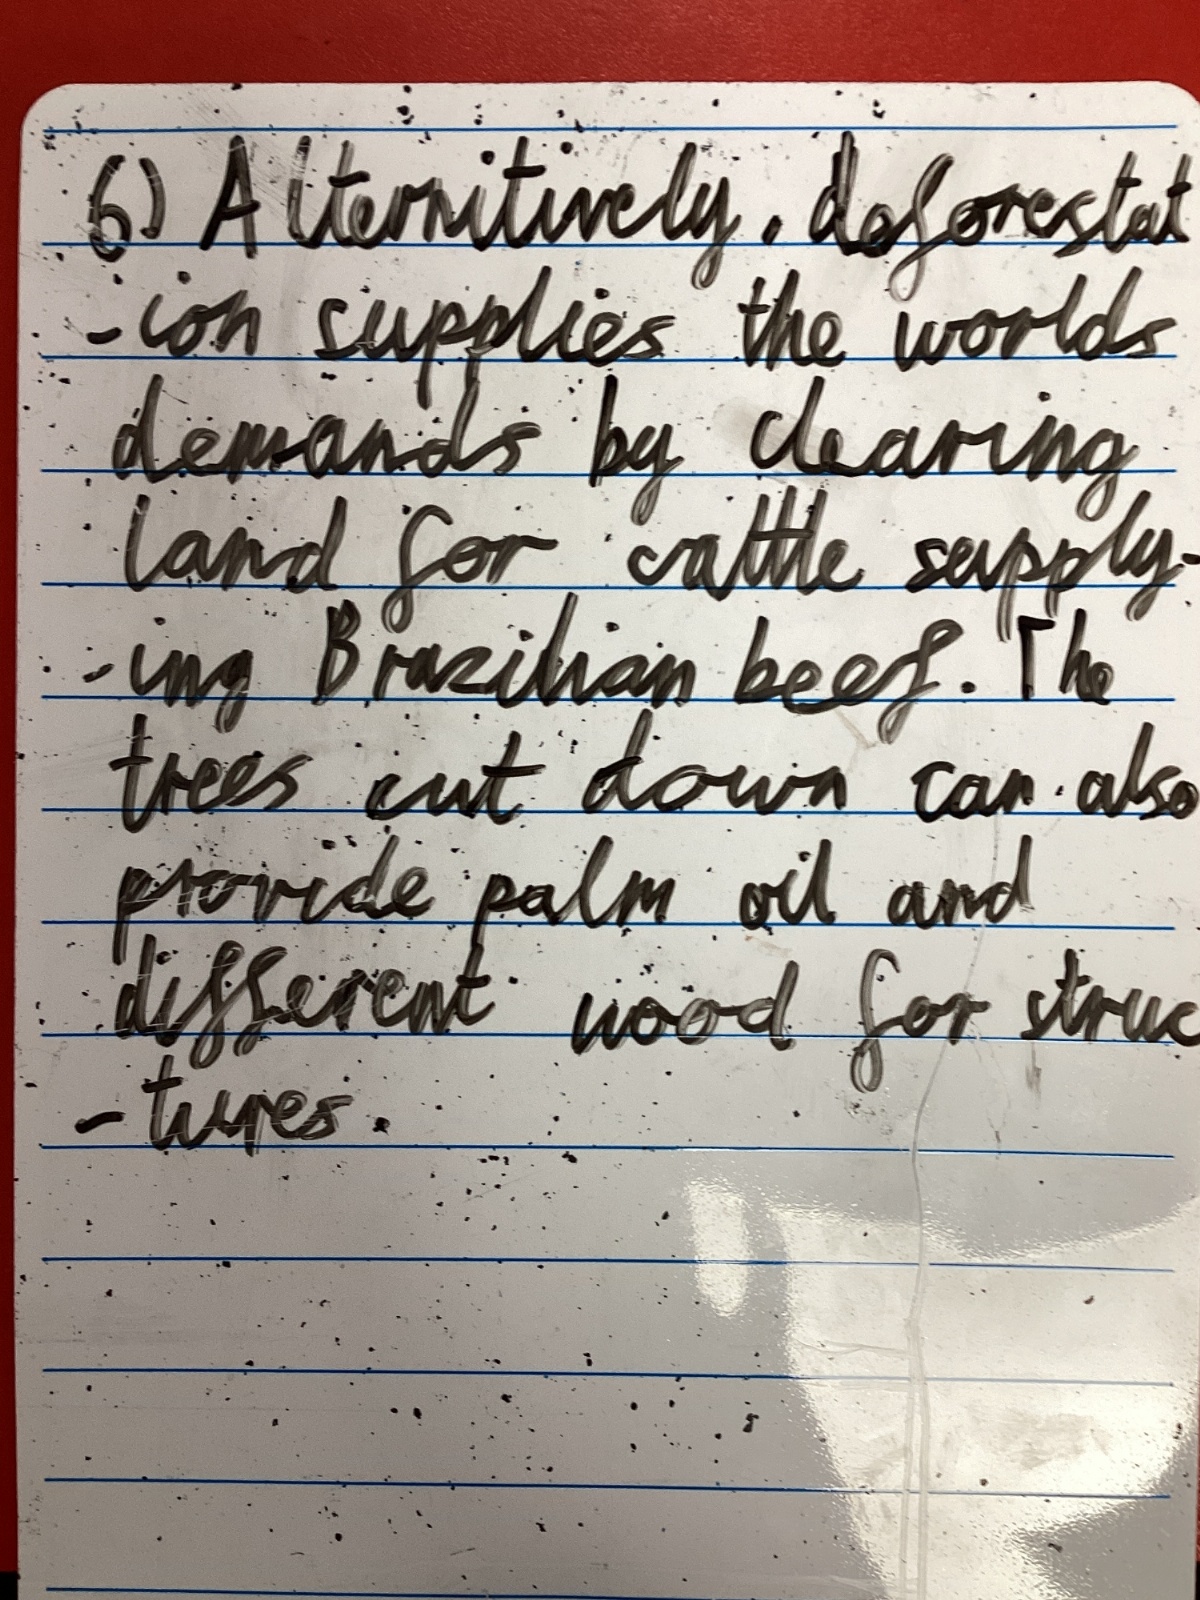 6) Alternitively, deforestat
-ion supplies the worlds
demands by clearing
land for cattle supply-
-ing Brazilian beef. The
trees cut down can also
provide palm oil and
different wood for struc
-tures.